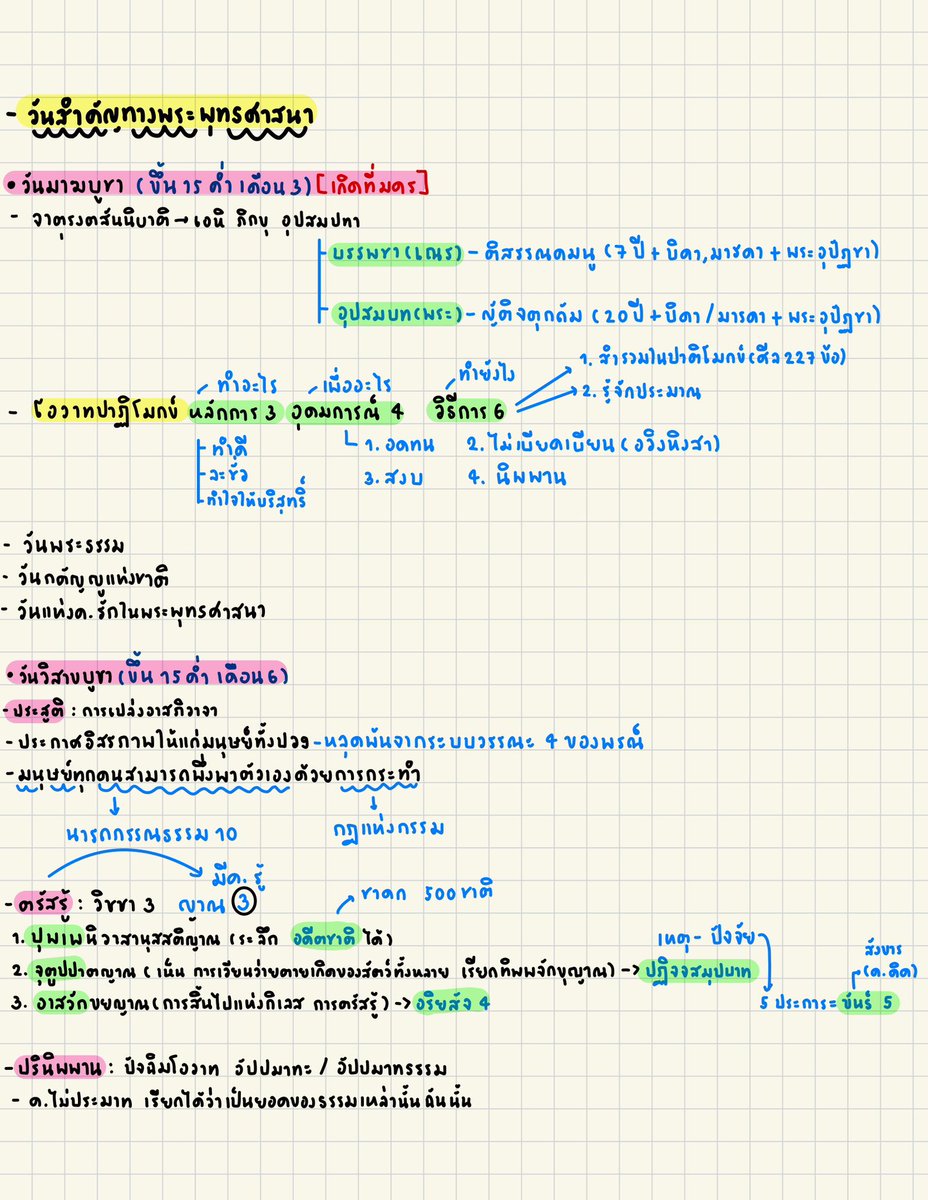 - วันสำคัญทางพระพุทธศาสนา
• วันมาฆบูชา (ขึ้น 15 ค่ำ เดือน 3) [เกิดที่มคธ]
- จาตุรงคสันนิบาติ → เอหิ ภิกขุ อุปสมปทา
บรรพชา (เณร) - ติสรรณคมนู (7 ปี + บิดา, มารดา + พระอุปัฏฌา)
อุปสมบท (พระ) - ญัติจตุกกัม (20 ปี + บิดา / มารดา + พระอุปัฏฌา)
ทำอะไร เพื่ออะไร ทำยังไง
1. สำรวมในปาติโมกข์ (ศีล 227 ข้อ)
2. รู้จักประมาณ
- โอวาทปาฏิโมกข์ หลักการ 3 อุดมการณ์ 4 วิธีการ 6
ทำดี
ละชั่ว
ทำใจให้บริสุทธิ์
1. อดทน 2. ไม่เบียดเบียน (อวิงหิงสา)
3. สงบ 4. นิพพาน
- วันพระธรรม
- วันกตัญญูแห่งชาติ
- วันแห่งค.รักในพระพุทธศาสนา
• วันวิสาขบูชา (ขึ้น 15 ค่ำ เดือน 6)
- ประสูติ : การเปล่งอาสภิวาจา
- ประกาศอิสรภาพให้แก่มนุษย์ทั้งปวง - หลุดพ้นจากระบบวรรณะ 4 ของพรณ์
- มนุษย์ทุกคนสามารถพึ่งพาตัวเองด้วยการกระทำ
นารถกรรณธรรม 10 กฎแห่งกรรม
มีค. รู้
- ตรัสรู้ : วิชชา 3 ญาณ 3 ชาดก 500 ชาติ
1. ปุพเพนิวาสานุสสติญาณ (ระลึก อดีตชาติ ได้)
เหตุ - ปัจจัย
2. จุตูปปาตญาณ (เน้น การเวียนว่ายตายเกิดของสัตว์ทั้งหลาย เรียกทิพพจักขุญาณ) -> ปฏิจจสมุปบาท
สังขาร
(ค.คิด)
3. อาสวักขยญาณ (การสิ้นไปแห่งกิเลส การตรัสรู้) -> อริยสัจ 4
5 ประการ = ขันธ์ 5
- ปรินิพพาน : ปัจฉิมโอวาท อัปปมาทะ / อัปปมาทธรรม
- ค.ไม่ประมาท เรียกได้ว่าเป็นยอดของธรรมเหล่านั้น ฉันนั้น